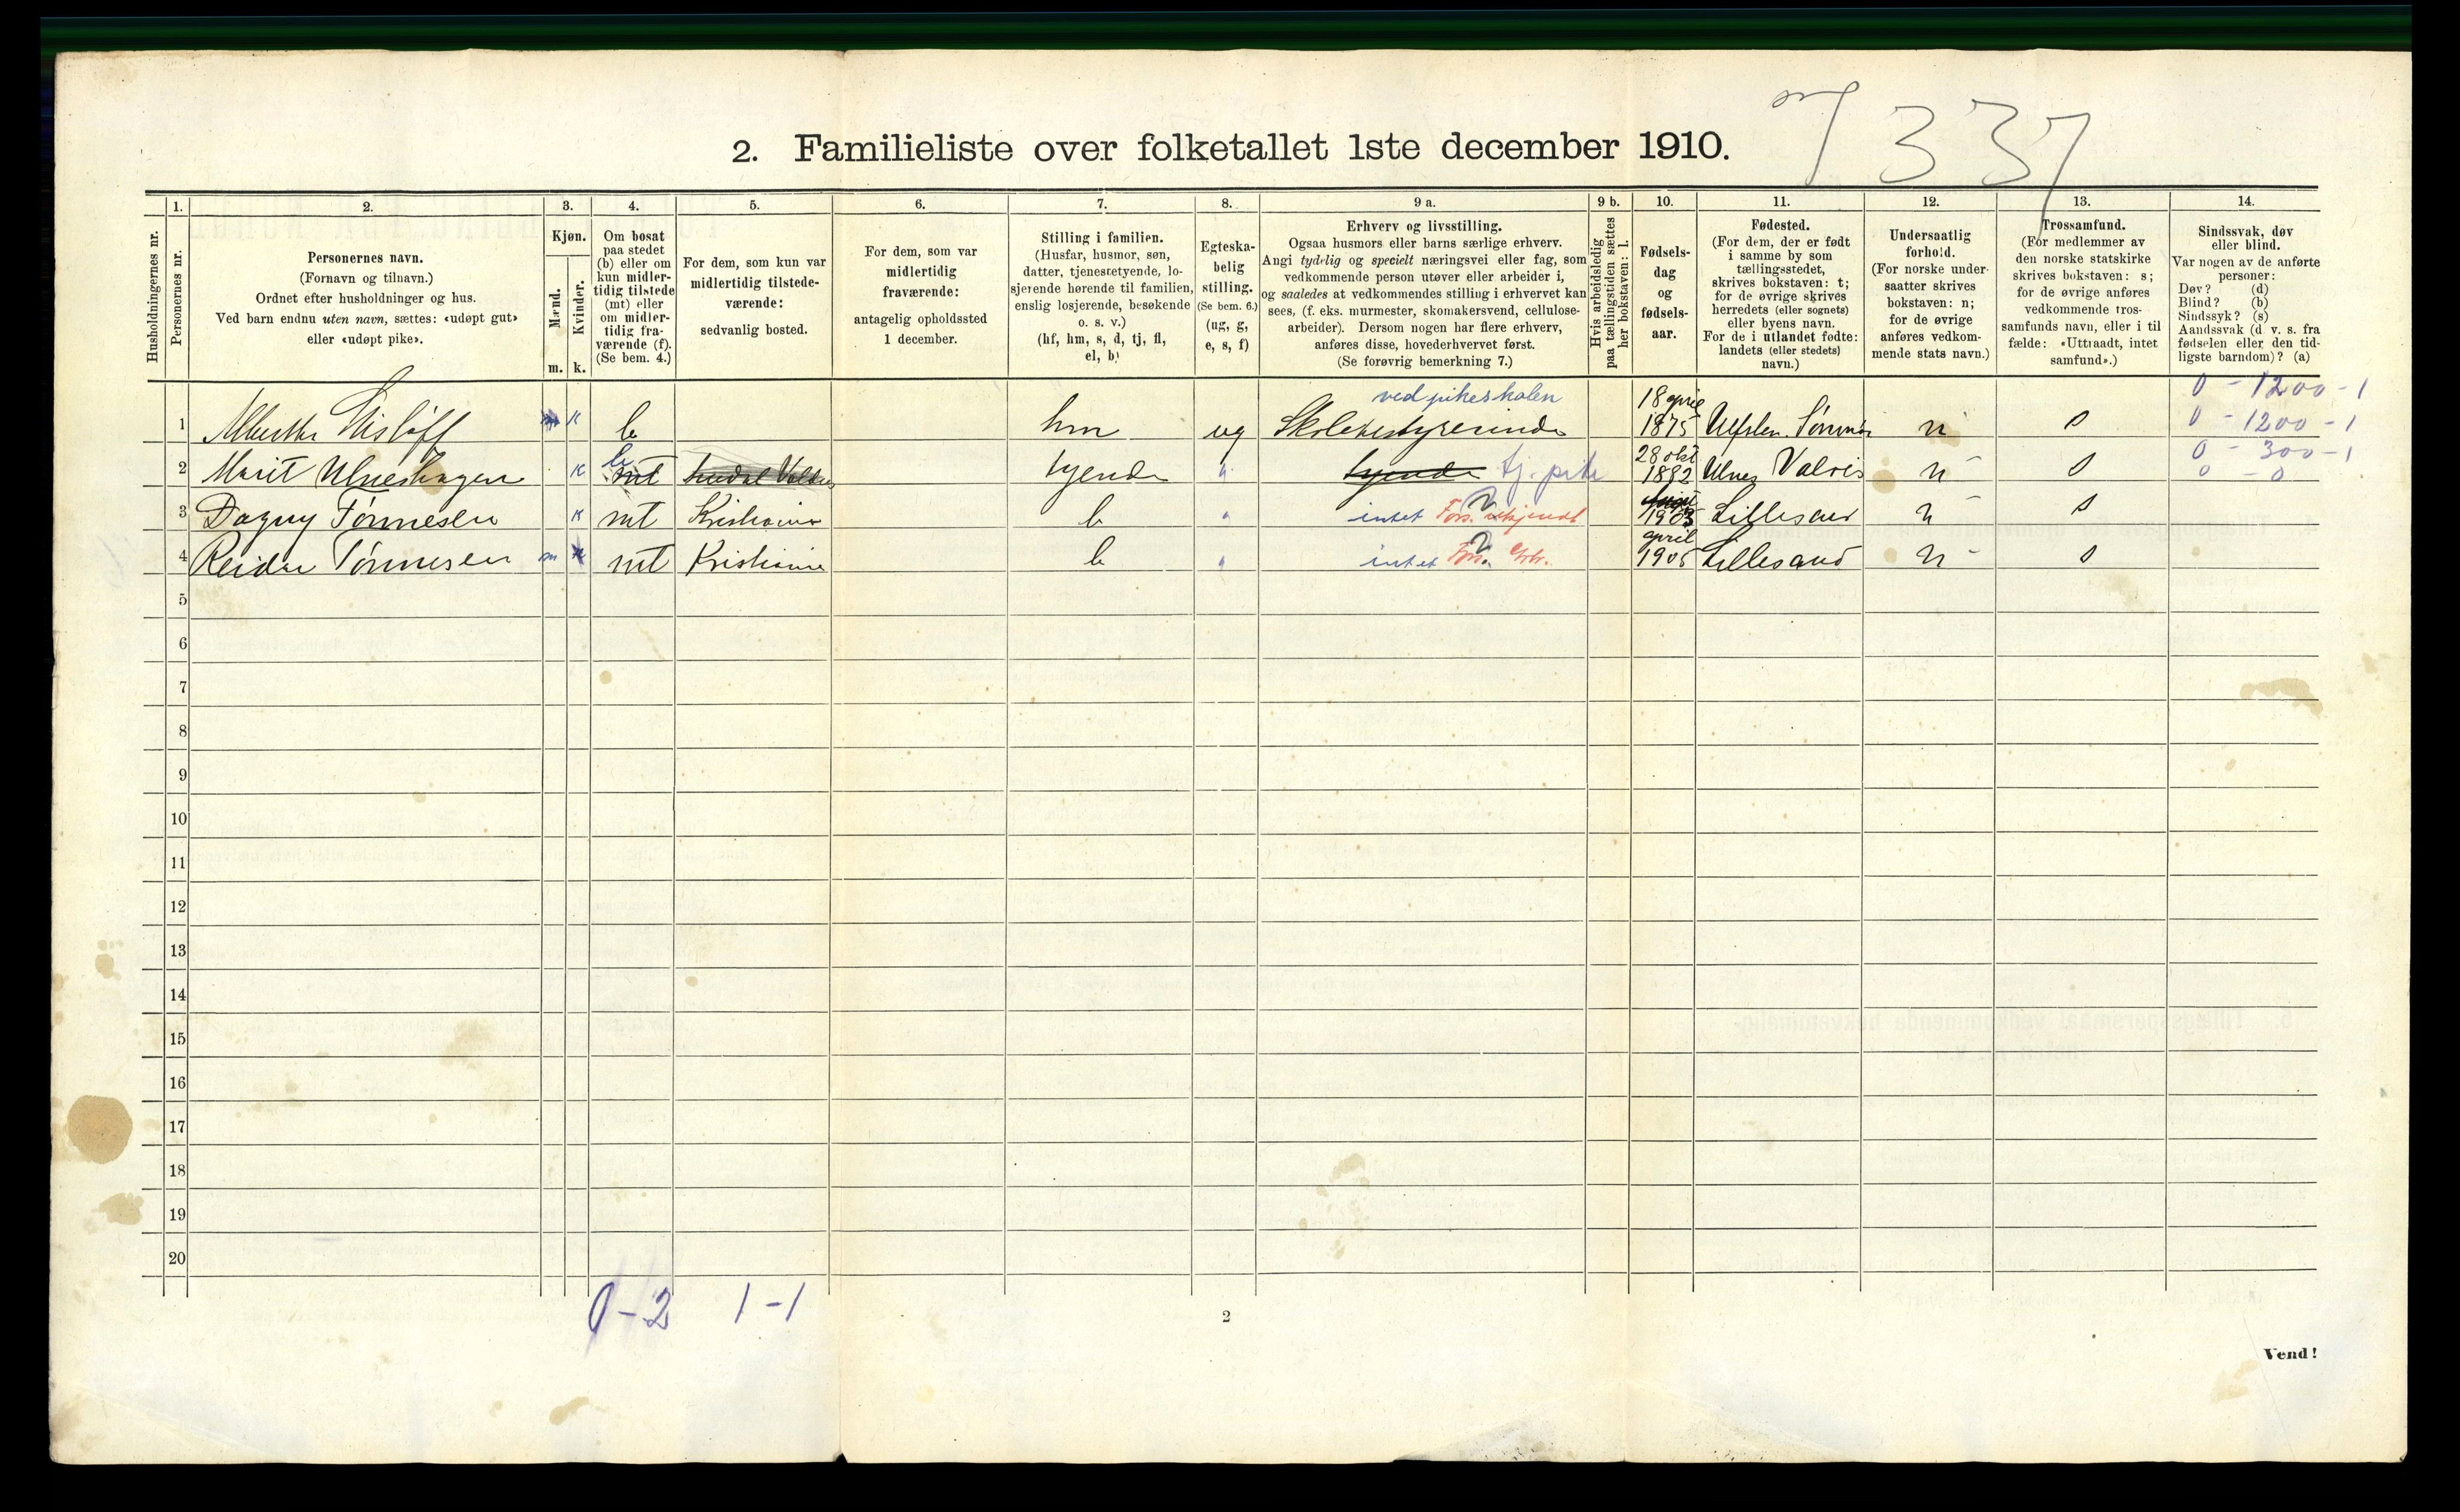 337
2. Familieliste over folketallet 1ste december 1910.
1. 2. 3. 4. 5. 6. 7. 8. 9 a. 9 b. 10. 11. 12. 13. 14.
Husholdningernes nr.
Personernes nr.
Personernes navn.
(Fornavn og tilnavn.)
Ordnet efter husholdninger og hus.
Ved barn endnu uten navn, sættes: «udøpt gut»
eller «udøpt pike».
Kjøn.
Mænd.
Kvinder.
m. k.
Om bosat
paa stedet
(b) eller om
kun midler-
tidig tilstede
(mt) eller
om midler-
tidig fra-
værende (f).
(Se bem. 4.)
For dem, som kun var
midlertidig tilstede-
værende:
sedvanlig bosted.
For dem, som var
midlertidig
fraværende:
antagelig opholdssted
1 december.
Stilling i familien.
(Husfar, husmor, søn,
datter, tjenestetyende, lo-
sjerende hørende til familien,
enslig losjerende, besøkende
o. s. v.)
(hf, hm, s, d, tj, fl,
el, b)
Egteska-
belig
stilling.
(Se bem. 6.)
(ug, g,
e, s, f)
Erhverv og livsstilling.
Ogsaa husmors eller barns særlige erhverv.
Angi tydelig og specielt næringsvei eller fag, som
vedkommende person utøver eller arbeider i,
og saaledes at vedkommendes stilling i erhvervet kan
sees, (f. eks. murmester, skomakersvend, cellulose-
arbeider). Dersom nogen har flere erhverv,
anføres disse, hovederhvervet først.
(Se forøvrig bemerkning 7.)
Hvis arbeidsledig
paa tællingstiden sættes
her bokstaven: l.
Fødsels-
dag
og
fødsels-
aar.
Fødested.
(For dem, der er født
i samme by som
tællingsstedet,
skrives bokstaven: t;
for de øvrige skrives
herredets (eller sognets)
eller byens navn.
For de i utlandet fødte:
landets (eller stedets)
navn.)
Undersaatlig
forhold.
(For norske under-
saatter skrives
bokstaven: n;
for de øvrige
anføres vedkom-
mende stats navn.)
Trossamfund.
(For medlemmer av
den norske statskirke
skrives bokstaven: s;
for de øvrige anføres
vedkommende tros-
samfunds navn, eller i til
fælde: «Uttraadt, intet
samfund».)
Sindssvak, døv
eller blind.
Var nogen av de anførte
personer:
Døv? (d)
Blind? (b)
Sindssyk? (s)
Aandssvak (d. v. s. fra
fødselen eller den tid-
ligste barndom)? (a)
0 - 1200 - 1
ved pikeskolen 18 april
1 k b hm ug Skolebestyrerinde 1875 n s 0 - 1200 - 1
b 28 okt 0 - 300 - 1
2 Marit Ulneshagen k mt tyende " tyende tj. pike 1882 Ulnes Valdres n s 0 - 0
3 Dagny Tønnesen k mt Kristiania b " intet Fors. 1903 Lillesand n s
april
4 Reidar Tønnesen m k mt Kristiania b " intet Fors. 1905 Lillesand n s
5
6
7
8
9
10
11
12
13
14
15
16
17
18
19
20
0 - 2 1 - 1
2
Vend!